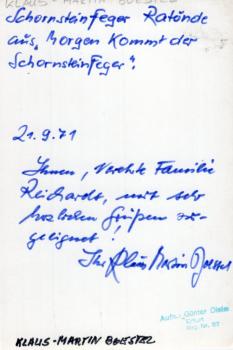 KLAUS-MARTIN BOESTEL
Schornsteinfeger Ratönde
aus „Morgen kommt der
Schornsteinfeger“.
21.9.71
Ihnen, verehrte Familie
Reichardt, mit sehr
herzlichen Grüßen zu-
geeignet!
Ihr Klaus Martin Boestel
Aufn.: Günter Dietel
Erfurt
Reg. Nr. 57
KLAUS-MARTIN BOESTEL